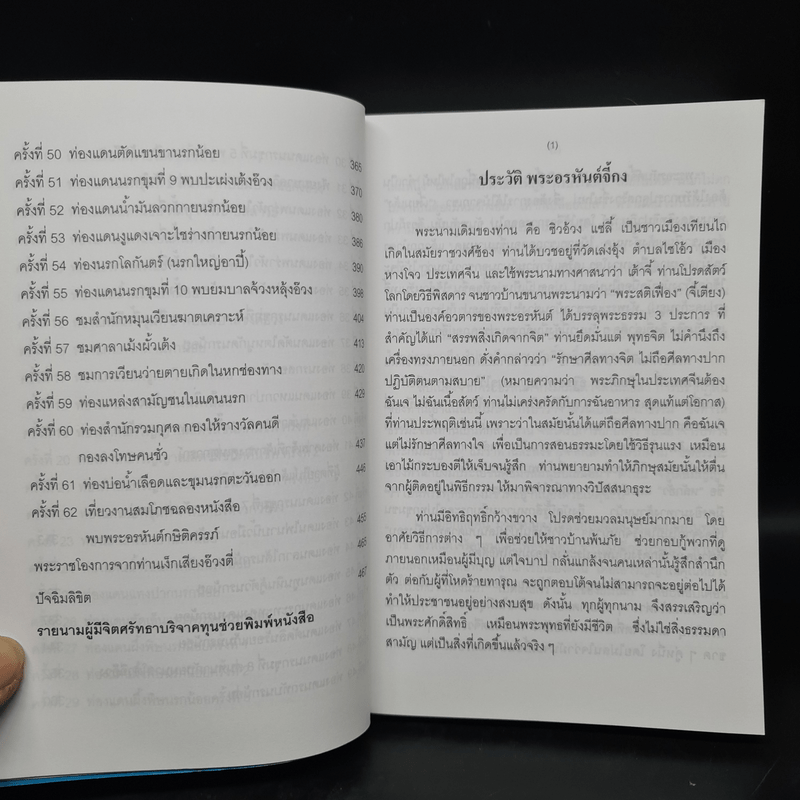 ครั้งที่ 50 ท่องแดนตัดแขนขานรกน้อย 365
ครั้งที่ 51 ท่องแดนนรกขุมที่ 9 พบปะเผ่งเต้งอ๊วง 370
ครั้งที่ 52 ท่องแดนน้ำมันลวกกายนรกน้อย 380
ครั้งที่ 53 ท่องแดนงูแดงเจาะไชร่างกายนรกน้อย 386
ครั้งที่ 54 ท่องนรกโลกันตร์ (นรกใหญ่อาปี้) 390
ครั้งที่ 55 ท่องแดนนรกขุมที่ 10 พบยมบาลจ้วงหลุ้งอ๊วง 398
ครั้งที่ 56 ชมสำนักหมุนเวียนฆาตเคราะห์ 404
ครั้งที่ 57 ชมศาลาเม้งผั้วเต้ง 413
ครั้งที่ 58 ชมการเวียนว่ายตายเกิดในหกช่องทาง 420
ครั้งที่ 59 ท่องแหล่งสามัญชนในแดนนรก 429
ครั้งที่ 60 ท่องสำนักรวมกุศล กองให้รางวัลคนดี
กองลงโทษคนชั่ว 437
ครั้งที่ 61 ท่องบ่อน้ำเลือดและขุมนรกตะวันออก 446
ครั้งที่ 62 เที่ยวงานสมโภชฉลองหนังสือ
พบพระอรหันต์กษิติครรภ์ 455
พระราชโองการจากท่านเง็กเสียงอ๊วงตี่ 465
ปัจฉิมลิขิต 467
รายนามผู้มีจิตศรัทธาบริจาคทุนช่วยพิมพ์หนังสือ
(1)
ประวัติ พระอรหันต์จี้กง
พระนามเดิมของท่าน คือ ซิวอ้วง แซ่ลี้ เป็นชาวเมืองเทียนไถ
เกิดในสมัยราชวงศ์ซ้อง ท่านได้บวชอยู่ที่วัดเล่งอุ้ง ตำบลไซโอ้ว เมือง
หางโจว ประเทศจีน และใช้พระนามทางศาสนาว่า เต้าจี้ ท่านโปรดสัตว์
โลกโดยวิธีพิสดาร จนชาวบ้านขนานพระนามว่า “พระสติเฟื่อง” (จี้เตียง)
ท่านเป็นองค์อวตารของพระอรหันต์ ได้บรรลุพระธรรม 3 ประการ ที่
สำคัญได้แก่ “สรรพสิ่งเกิดจากจิต” ท่านยึดมั่นแต่ พุทธจิต ไม่คำนึงถึง
เครื่องทรงภายนอก ดั่งคำกล่าวว่า “รักษาศีลทางจิต ไม่ถือศีลทางปาก
ปฏิบัติตนตามสบาย” (หมายความว่า พระภิกษุในประเทศจีนต้อง
ฉันเจ ไม่ฉันเนื้อสัตว์ ท่านไม่เคร่งครัดกับการฉันอาหาร สุดแท้แต่โอกาส)
ที่ท่านประพฤติเช่นนี้ เพราะว่าในสมัยนั้นได้แต่ถือศีลทางปาก คือฉันเจ
แต่ไม่รักษาศีลทางใจ เพื่อเป็นการสอนธรรมะโดยใช้วิธีรุนแรง เหมือน
เอาไม้กระบองตีให้เจ็บจนรู้สึก ท่านพยายามทำให้ภิกษุสมัยนั้นให้ตื่น
จากผู้ติดอยู่ในพิธีกรรม ให้มาพิจารณาทางวิปัสสนาธุระ
ท่านมีอิทธิฤทธิ์กว้างขวาง โปรดช่วยมวลมนุษย์มากมาย โดย
อาศัยวิธีการต่าง ๆ เพื่อช่วยให้ชาวบ้านพ้นภัย ช่วยกอบกู้พวกที่ดู
ภายนอกเหมือนผู้มีบุญ แต่ใจบาป กลั่นแกล้งจนคนเหล่านั้นรู้สึกสำนึก
ตัว ต่อกับผู้ที่โหดร้ายทารุณ จะถูกตอบโต้จนไม่สามารถจะอยู่ต่อไปได้
ทำให้ประชาชนอยู่อย่างสงบสุข ดังนั้น ทุกผู้ทุกนาม จึงสรรเสริญว่า
เป็นพระศักดิ์สิทธิ์ เหมือนพระพุทธที่ยังมีชีวิต ซึ่งไม่ใช่สิ่งธรรมดา
สามัญ แต่เป็นสิ่งที่เกิดขึ้นแล้วจริง ๆ